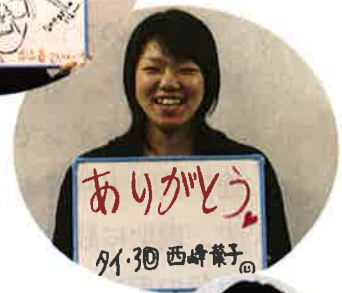 ありがとう
タイ・3回 西峰葉子